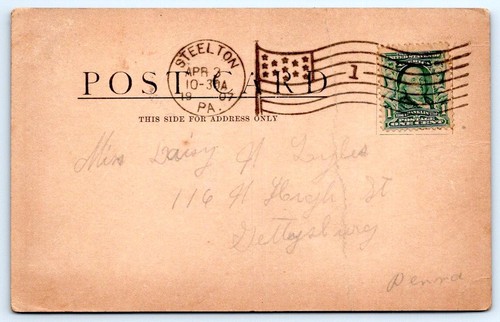 STEELTON
APR 2
10-30A
1907
PA.
1
POST CARD
THIS SIDE FOR ADDRESS ONLY
FRANKLIN
POSTAGE
ONE CENT
Miss Daisy H
116 N High St
Gettysburg
Penna